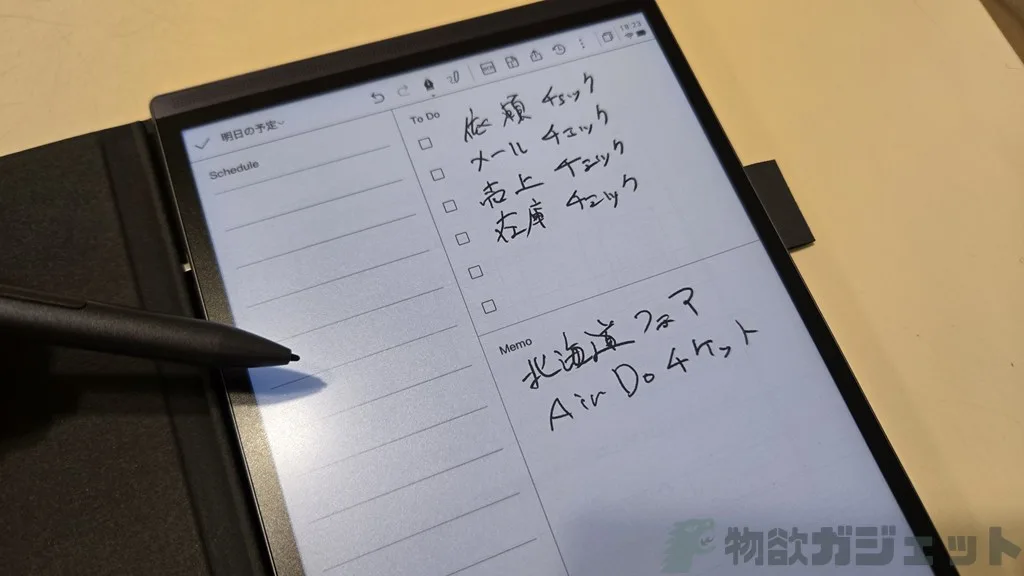 18:23
明日の予定
Schedule
To Do
依頼 チェック
メール チェック
売上 チェック
在庫 チェック
Memo
北海道フェア
Air Do チケット
物欲ガジェット